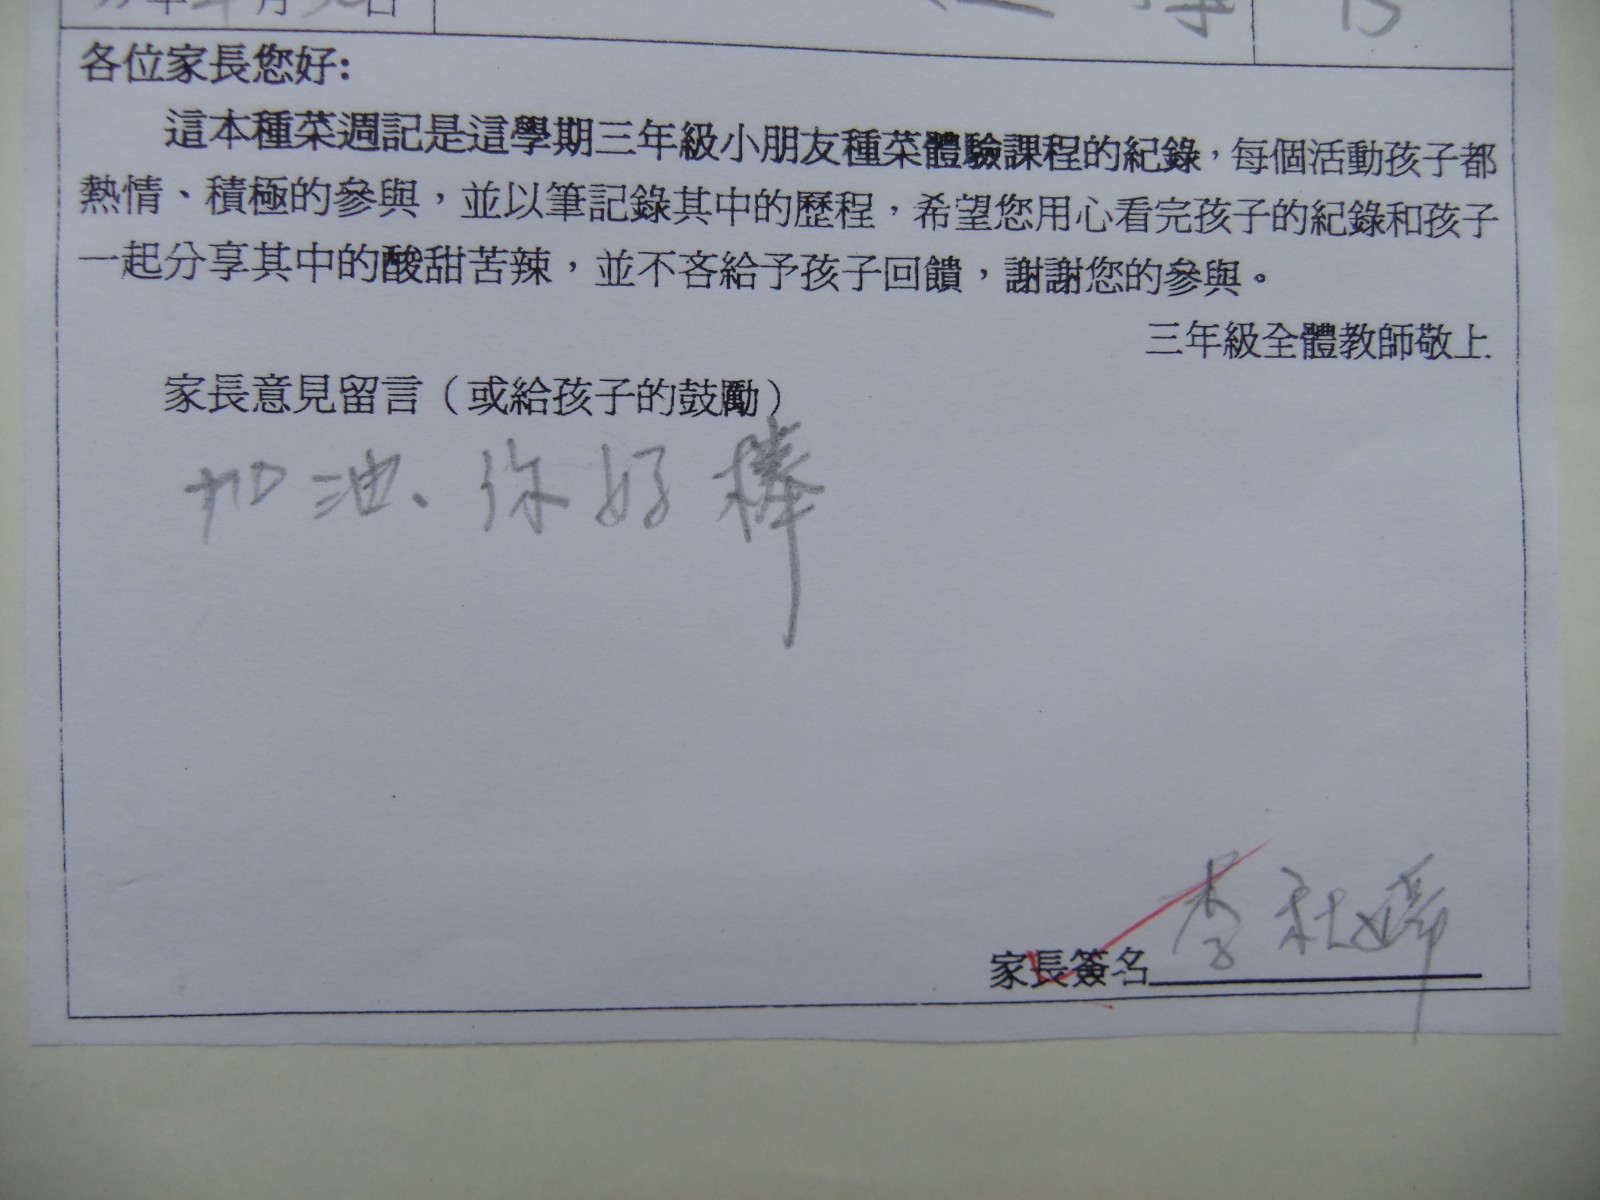 年 月 30日
各位家長您好:
這本種菜週記是這學期三年級小朋友種菜體驗課程的紀錄，每個活動孩子都
熱情、積極的參與，並以筆記錄其中的歷程，希望您用心看完孩子的紀錄和孩子
一起分享其中的酸甜苦辣，並不吝給予孩子回饋，謝謝您的參與。
三年級全體教師敬上.
家長意見留言（或給孩子的鼓勵）
加油、你好棒
家長簽名 李秋婷